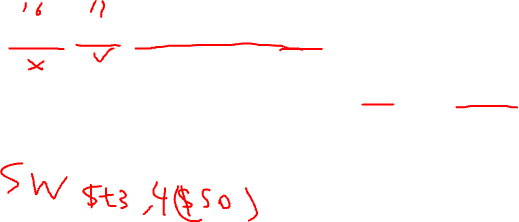 16 11
x ✓
SW $t3,4($s0)